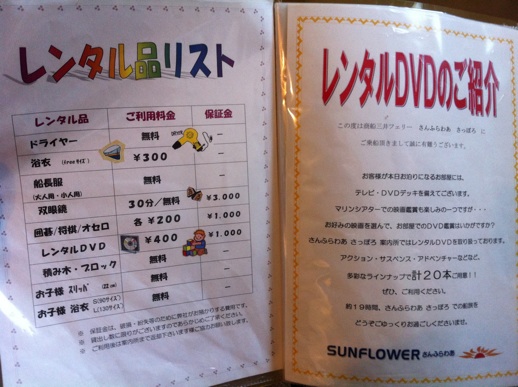 レンタル品リスト
レンタル品 ご利用料金 保証金
ドライヤー 無料 ―
浴衣 (Freeサイズ) ¥300 ―
船長服 (大人用・小人用) 無料 ―
双眼鏡 30分/無料 ¥3,000
囲碁/将棋/オセロ 各¥200 ¥1,000
レンタルDVD ¥400 ¥1,000
積み木・ブロック 無料 ―
お子様 スリッパ 無料 ―
お子様 浴衣 S(90サイズ) L(130サイズ) 無料 ―
※ 保証金は、破損・紛失等のために弊社がお預かりする費用です。
※ 貸出し数に限りがございますのであらかじめご了承ください。
※ ご利用後は案内所まで返却下さいます様ご協力お願い致します。
レンタルDVDのご紹介
この度は商船三井フェリー さんふらわあ さっぽろ に
ご乗船頂きまして誠に有難うございます。
お客様が本日お泊りになるお部屋には、
テレビ・DVDデッキを備えてございます。
マリンシアターでの映画鑑賞も楽しみの一つですが・・・
お好みの映画を選んで、お部屋でのDVD鑑賞はいかがですか?
さんふらわあ さっぽろ 案内所ではレンタルDVDを取り扱っております。
アクション・サスペンス・アドベンチャーなどなど、
多彩なラインナップで計20本ご用意!!
ぜひ、ご利用ください。
約19時間、さんふらわあ さっぽろ での船旅を
どうぞごゆっくりお過ごしくださいませ。
SUNFLOWER さんふらわあ